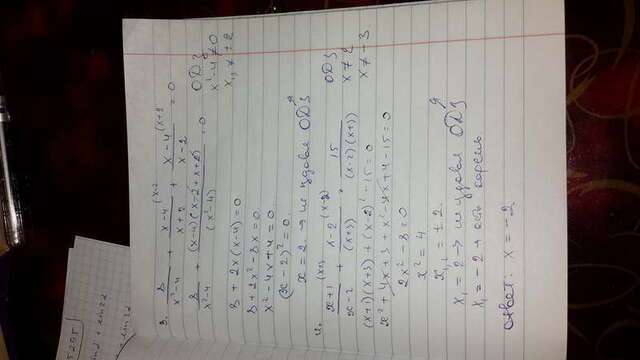 3. 8/(x²-4) + (x-4)/(x+2) (x-2 + (x-4)/(x-2) (x+2 = 0
8/(x²-4) + (x-4)(x-2+x+2)/(x²-4) = 0
ОДЗ
x²-4≠0
x₁,≠±2
8+2x(x-4)=0
8+2x²-8x=0
x²-4x+4=0
(x-2)²=0
x=2 → не удовл ОДЗ
4. (x+1)/(x-2) (x+3) + (x-2)/(x+3) (x-2) = 15/((x-2)(x+3))
ОДЗ
x≠2
x≠-3
(x+1)(x+3)+(x-2)²-15=0
x²+4x+3+x²-4x+4-15=0
2x²-8=0
x²=4
x₁,₂=±2.
x₁=2 → не удовл ОДЗ
x₁=-2 → есть корень
Ответ: x=-2